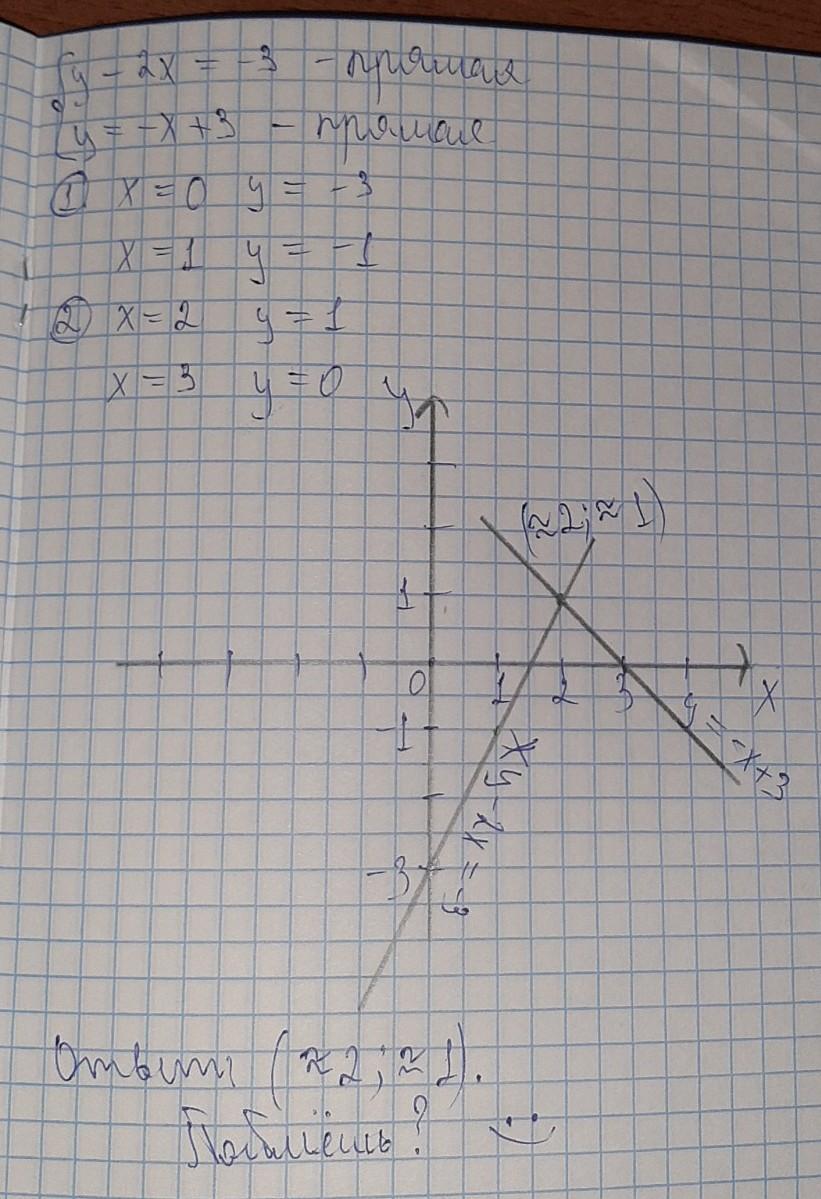 {y - 2x = -3 - прямая
{y = -x + 3 - прямая
① x = 0 y = -3
x = 1 y = -1
② x = 2 y = 1
x = 3 y = 0
y
(≈2; ≈1)
1
0 1 2 3 x
-1
y = -x+3
y - 2x = -3
-3
Ответ: (≈2; ≈1).